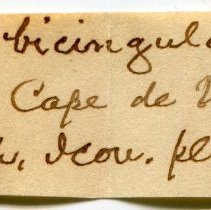 bicingul
Cape de
Icon. pl